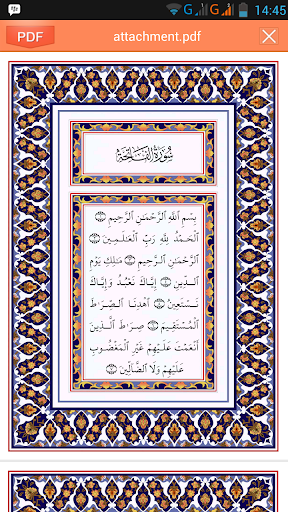 G G 14:45
PDF
attachment.pdf
سُورَةُ الْفَاتِحَةِ
بِسْمِ اللَّهِ الرَّحْمَٰنِ الرَّحِيمِ ۝
الْحَمْدُ لِلَّهِ رَبِّ الْعَالَمِينَ ۝
الرَّحْمَٰنِ الرَّحِيمِ ۝ مَالِكِ يَوْمِ
الدِّينِ ۝ إِيَّاكَ نَعْبُدُ وَإِيَّاكَ
نَسْتَعِينُ ۝ اهْدِنَا الصِّرَاطَ
الْمُسْتَقِيمَ ۝ صِرَاطَ الَّذِينَ
أَنْعَمْتَ عَلَيْهِمْ غَيْرِ الْمَغْضُوبِ
عَلَيْهِمْ وَلَا الضَّالِّينَ ۝